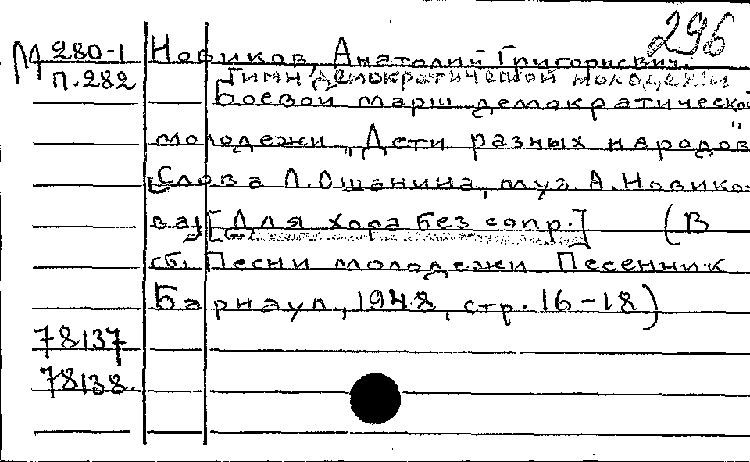 296
М 280-1 Новиков, Анатолий Григорьевич.
п.282 Гимн демократической молодежи
Боевой марш демократической
молодежи „Дети разных народов"
[Слова Л. Ошанина, муз. А. Новико-
ва] [Для хора без сопр.] (В
сб. Песни молодежи Песенник
Барнаул, 1948, стр. 16-18)
78137
78138.